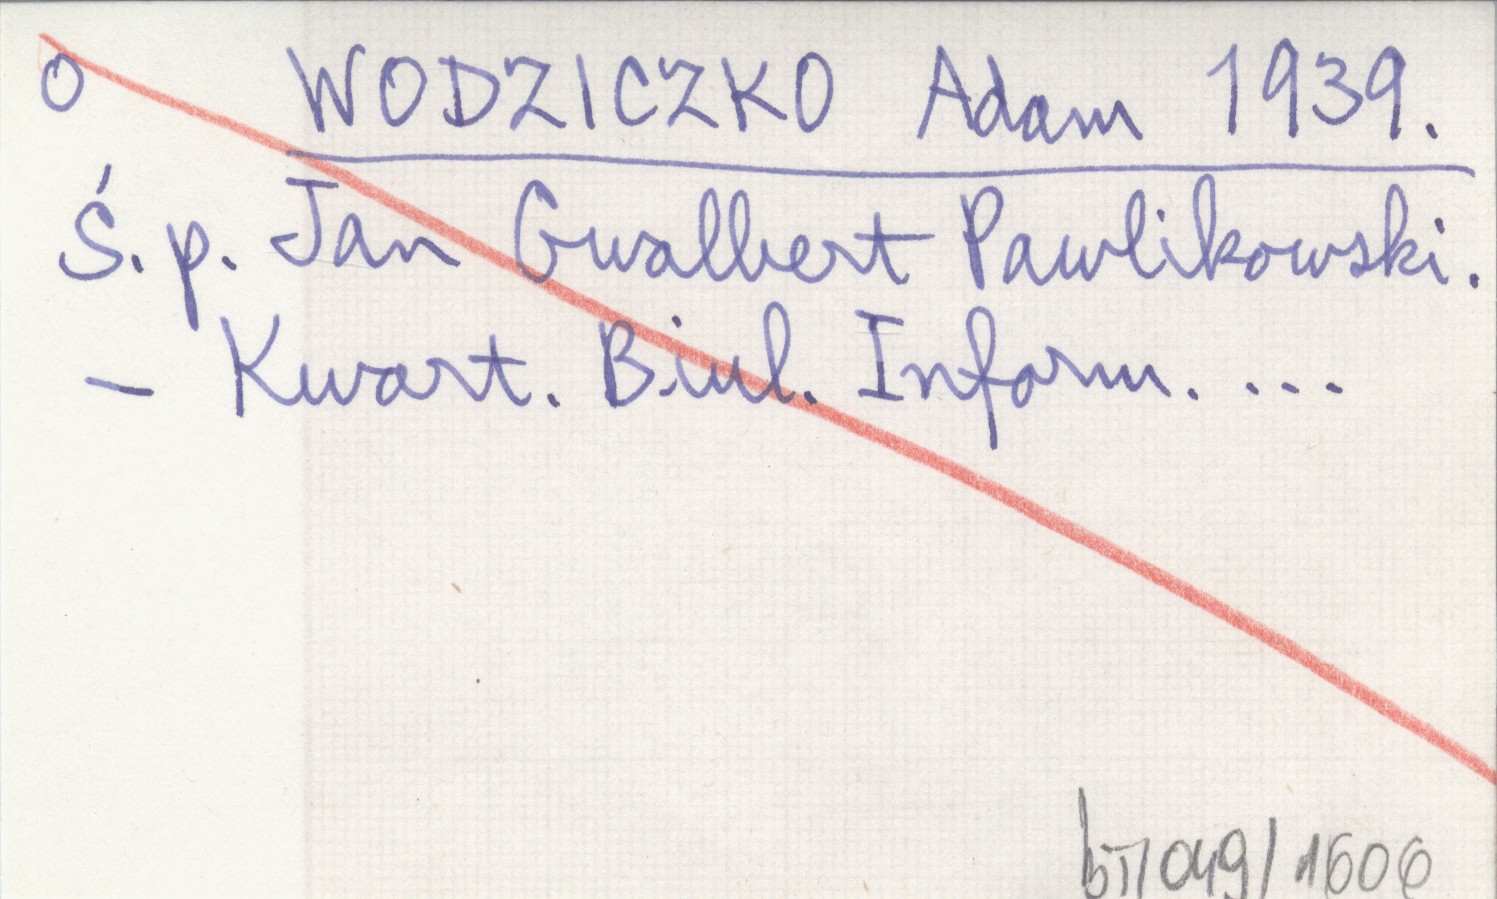 O WODZICZKO Adam 1939.
Ś.p. Jan Gwalbert Pawlikowski.
- Kwart. Biul. Inform. ...
049/1606